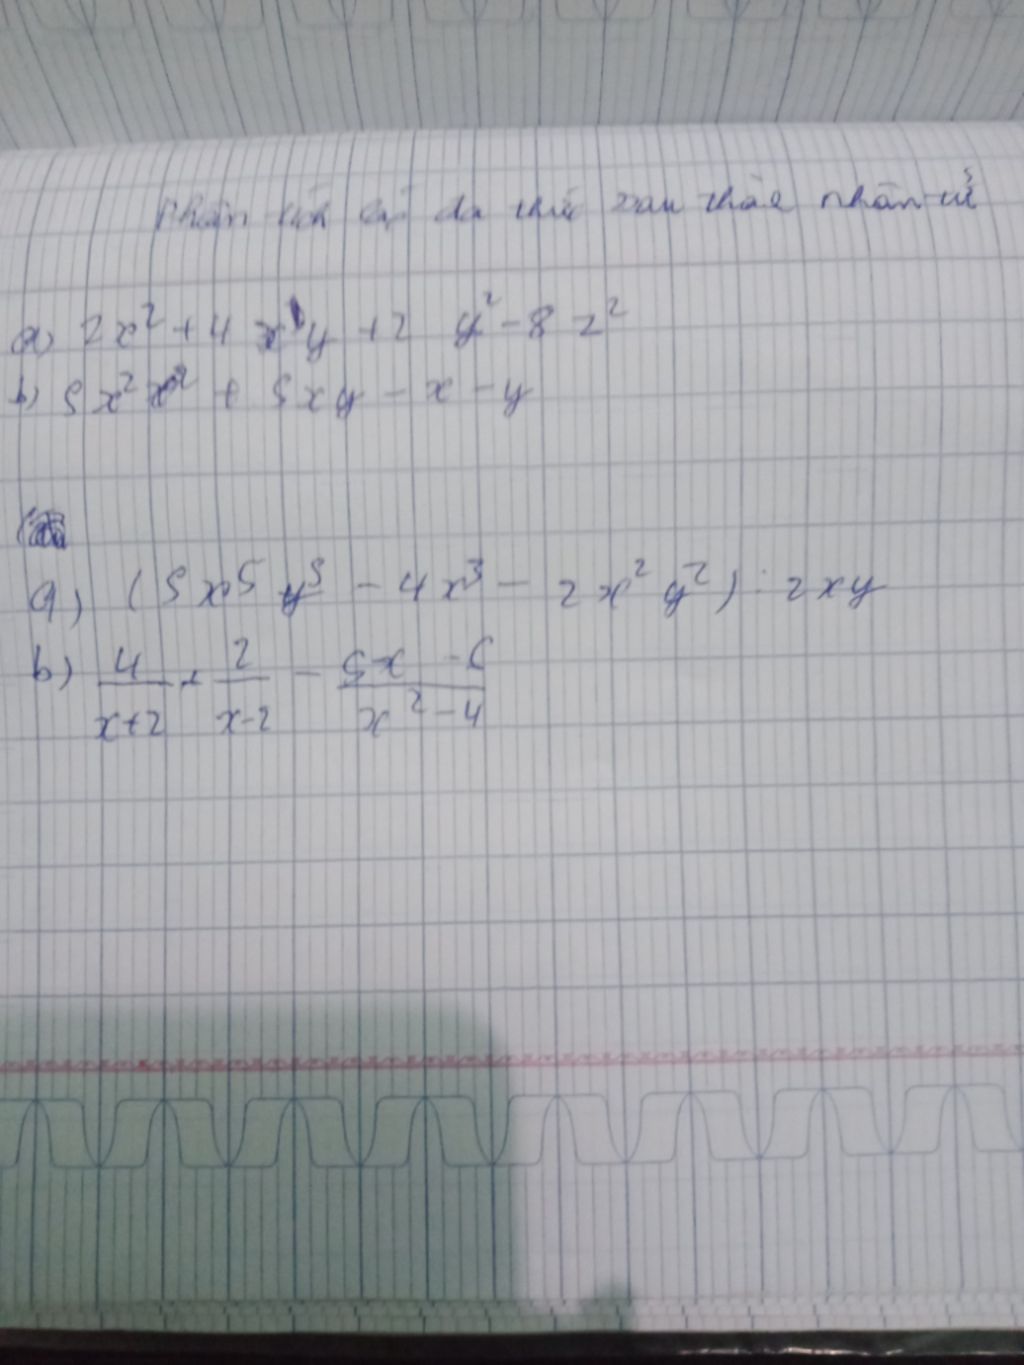 Phân tích các đa thức sau thành nhân tử
a) 2x² + 4xy + 2 y² - 8z²
b) 5x² + 5xy - x - y
a) (5x⁵y³ - 4x³ - 2x²y²) : 2xy
b) 4/(x+2) + 2/(x-2) - (5x - 6)/(x² - 4)